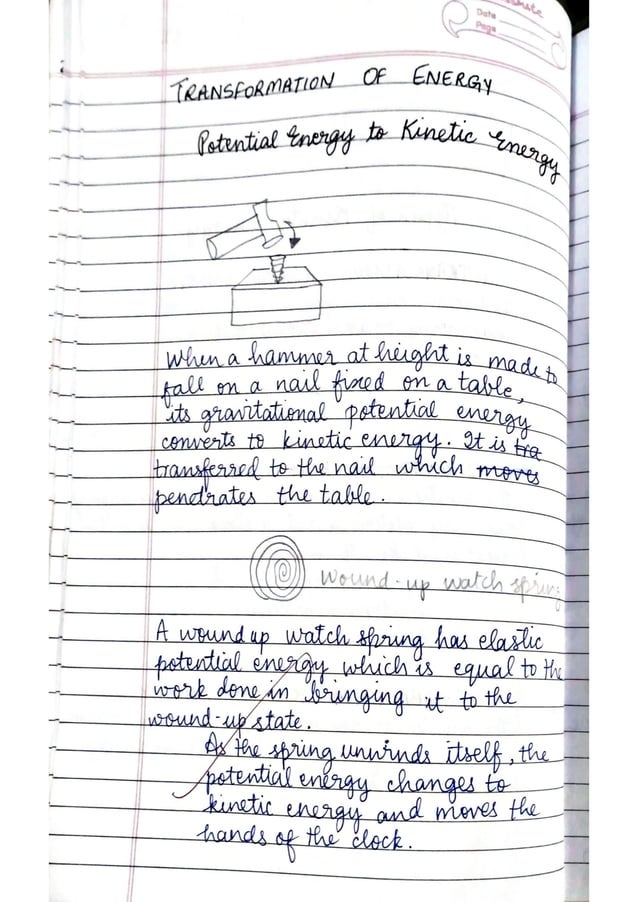 Date
Page
TRANSFORMATION OF ENERGY
Potential Energy to Kinetic Energy
When a hammer at height is made to
fall on a nail fixed on a table,
its gravitational potential energy
converts to kinetic energy. It is tra
transferred to the nail which moves
penetrates the table.
wound-up watch spring
A wound up watch spring has elastic
potential energy which is equal to the
work done in bringing it to the
wound-up state.
As the spring unwinds itself, the
potential energy changes to
kinetic energy and moves the
hands of the clock.